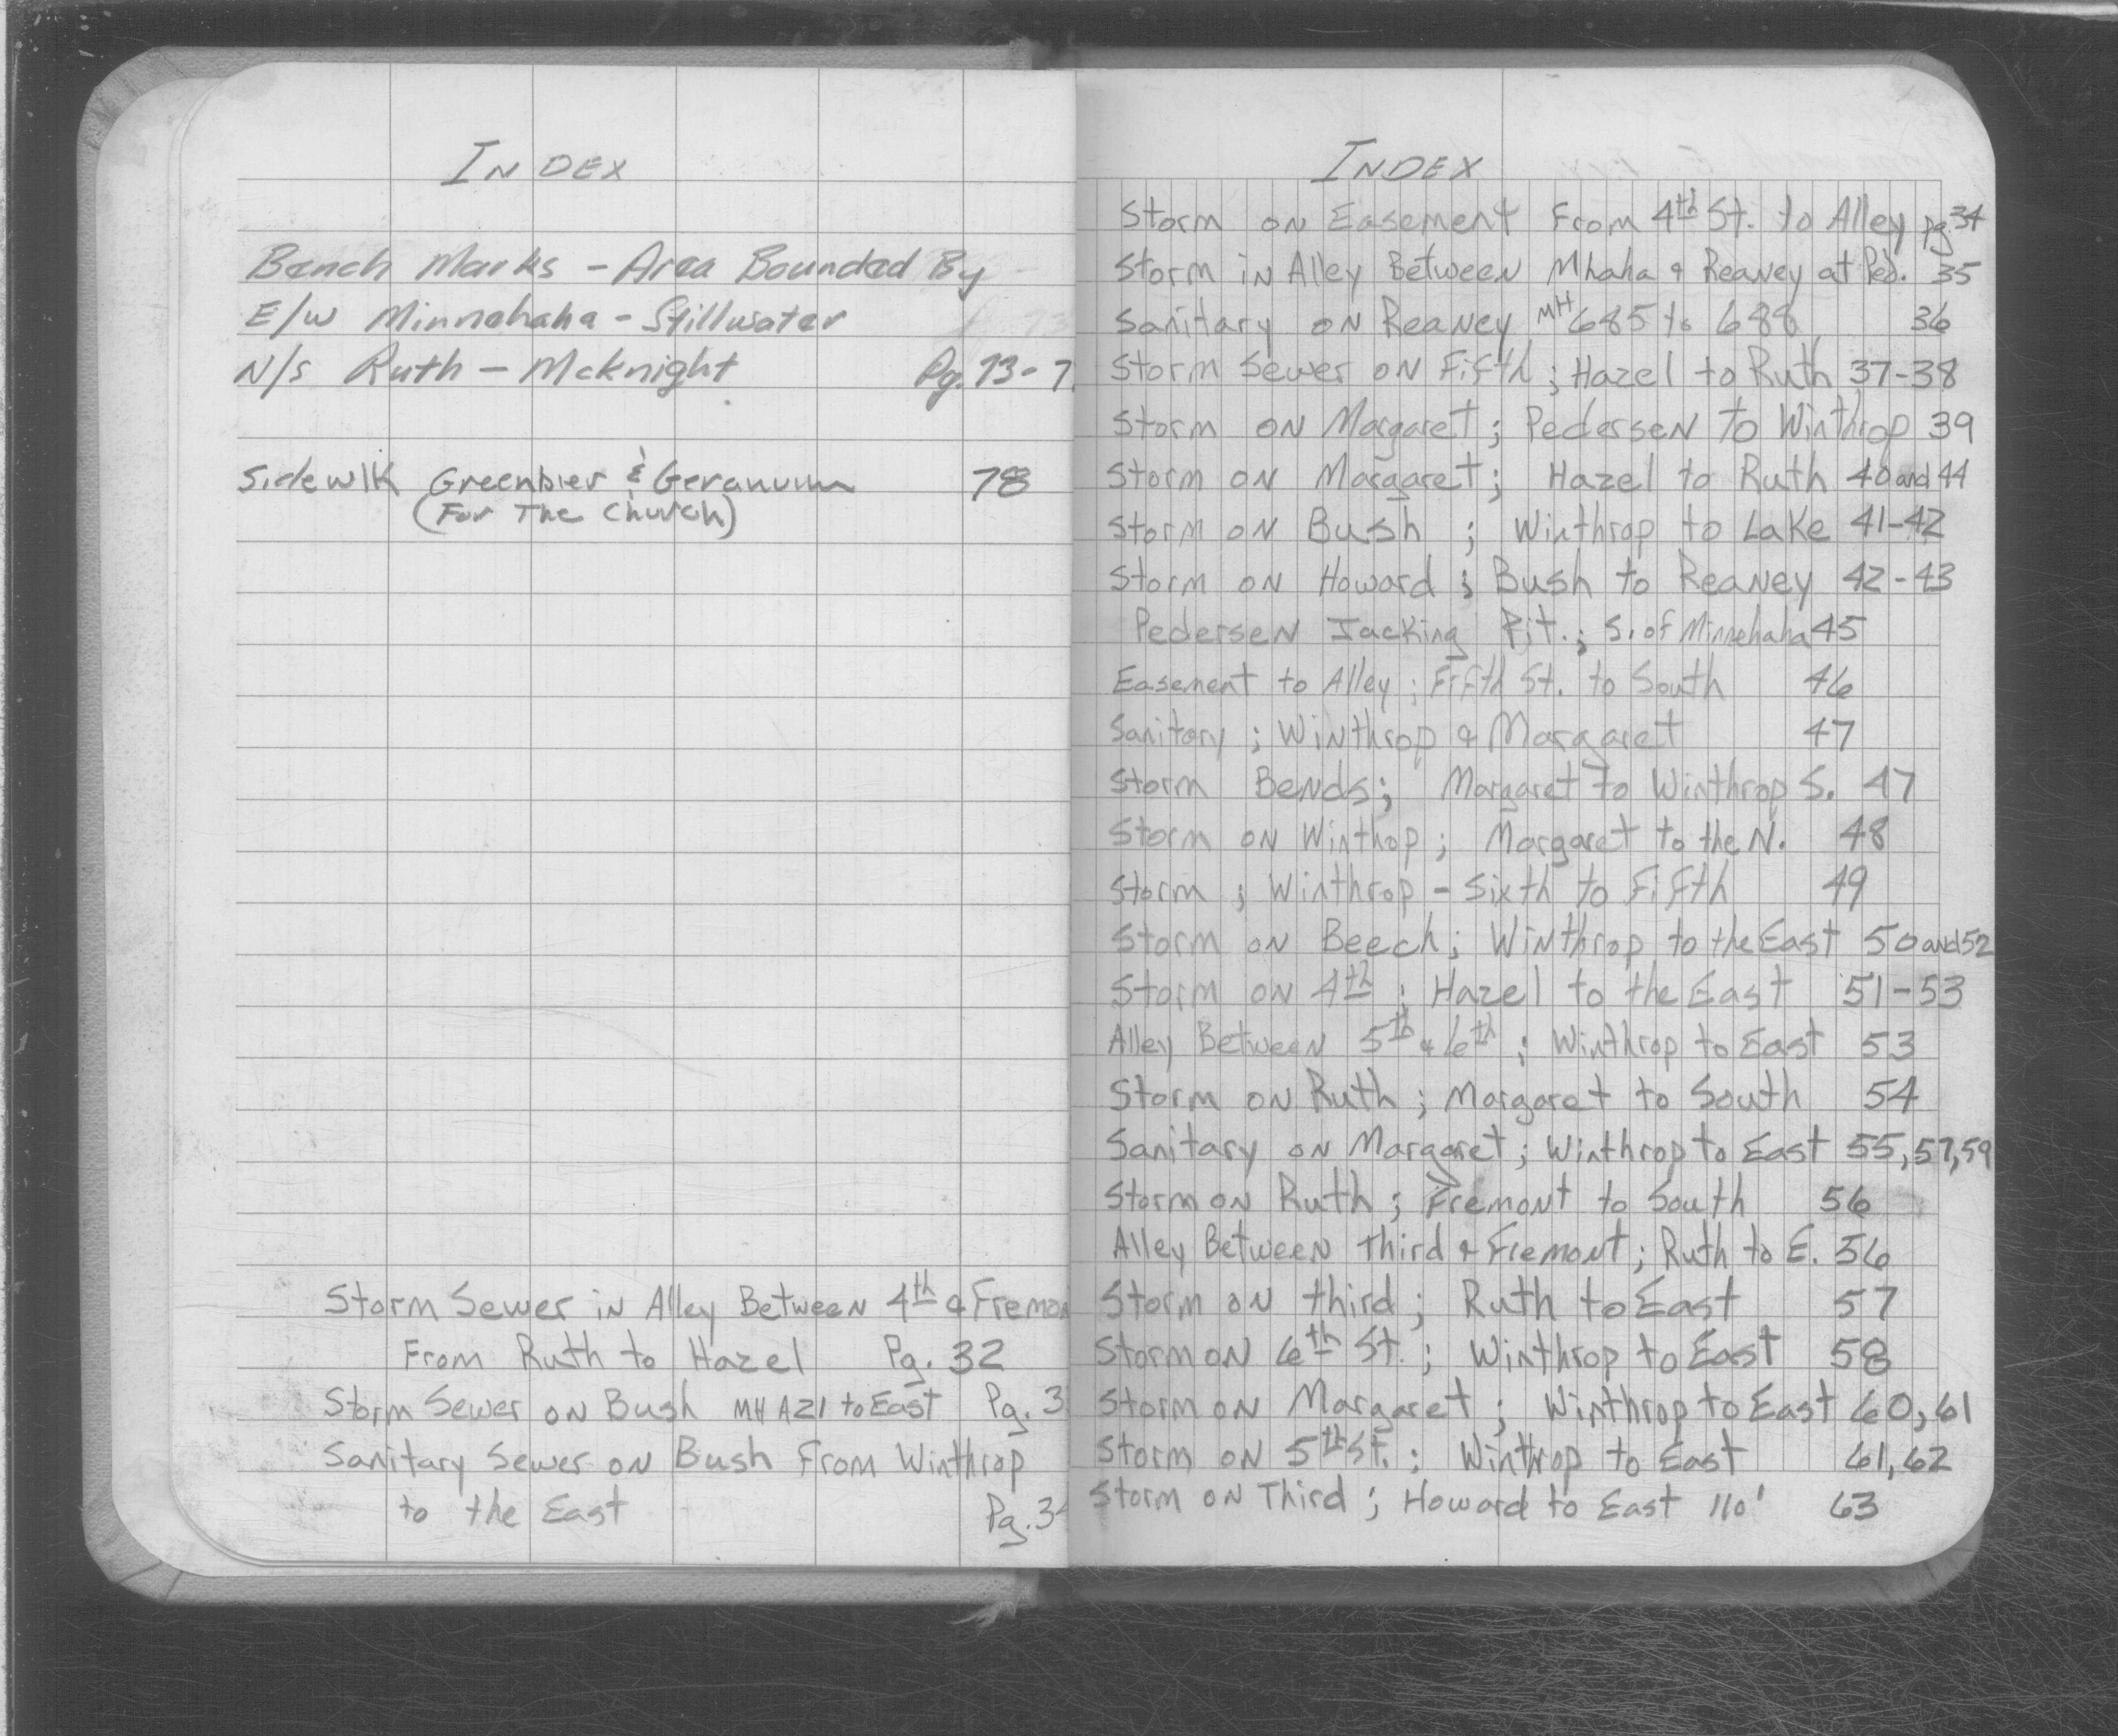 INDEX
Bench Marks - Area Bounded By
E/W Minnehaha - Stillwater
N/S Ruth - McKnight Pg. 73-7
Sidewlk Greenbrier & Geranium 78
(For The Church)
Storm Sewer in Alley Between 4th & Fremon
From Ruth to Hazel Pg. 32
Storm Sewer on Bush MH A21 to East Pg. 3
Sanitary Sewer on Bush From Winthrop
to the East Pg. 34
INDEX
Storm on Easement From 4th St. to Alley pg. 34
Storm in Alley Between Mhaha & Reaney at Ped. 35
Sanitary on Reaney MH 685 to 688 36
Storm Sewer on Fifth; Hazel to Ruth 37-38
Storm on Margaret; Pedersen to Winthrop 39
Storm on Margaret; Hazel to Ruth 40 and 44
Storm on Bush; Winthrop to Lake 41-42
Storm on Howard; Bush to Reaney 42-43
Pedersen Jacking Pit.; S. of Minnehaha 45
Easement to Alley; Fifth St. to South 46
Sanitary; Winthrop & Margaret 47
Storm Bends; Margaret to Winthrop S. 47
Storm on Winthop; Margaret to the N. 48
Storm; Winthrop - Sixth to Fifth 49
Storm on Beech; Winthrop to the East 50 and 52
Storm on 4th; Hazel to the East 51-53
Alley Between 5th & 6th; Winthrop to East 53
Storm on Ruth; Margaret to South 54
Sanitary on Margaret; Winthrop to East 55, 57, 59
Storm on Ruth; Fremont to South 56
Alley Between Third & Fremont; Ruth to E. 56
Storm on third; Ruth to East 57
Storm on 6th St.; Winthrop to East 58
Storm on Margaret; Winthrop to East 60, 61
Storm on 5th St.; Winthrop to East 61, 62
Storm on Third; Howard to East 110' 63